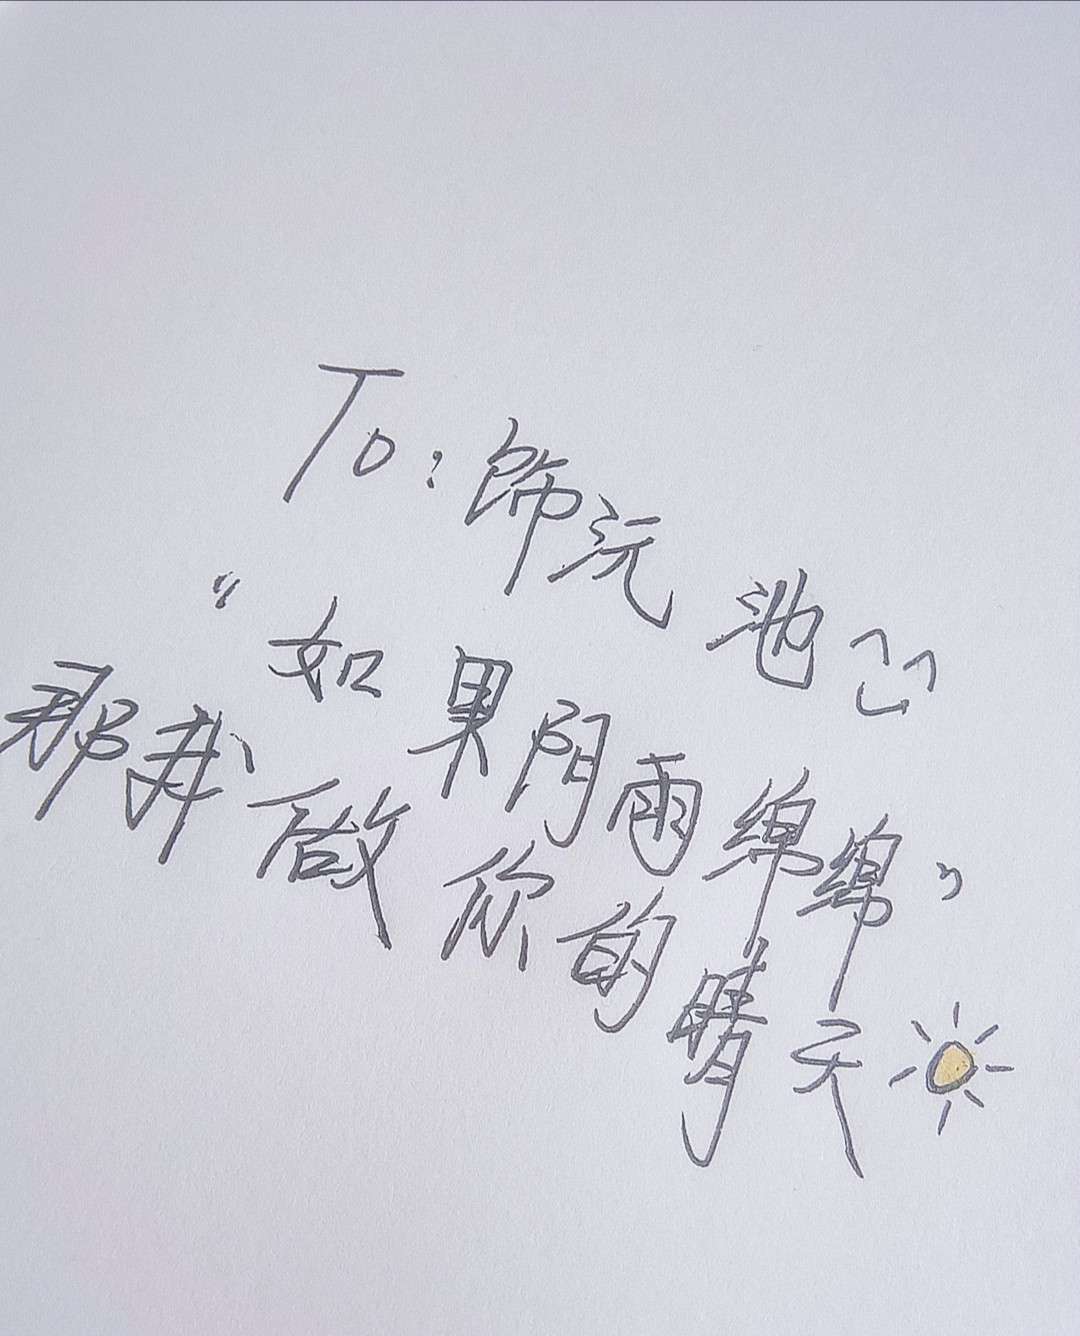 To：饰沅池
“如果阴雨绵绵”
那我做你的晴天